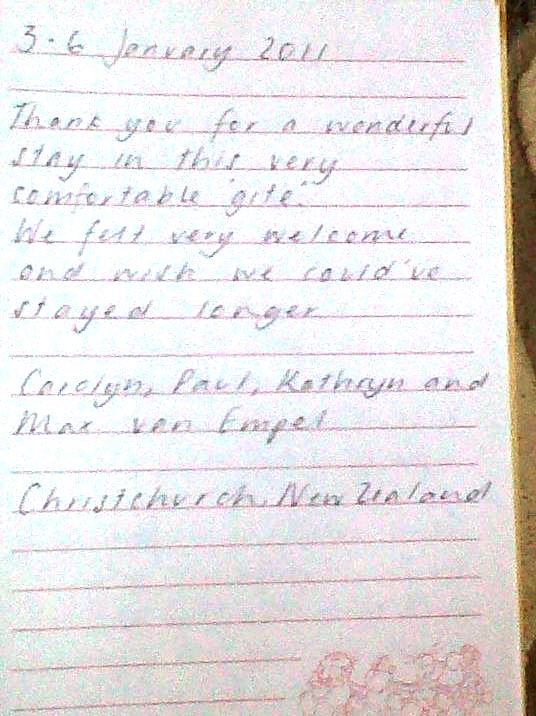 3-6 January 2011
Thank you for a wonderful
stay in this very
comfortable "gite".
We felt very welcome
and wish we could've
stayed longer
Carolyn, Paul, Kathryn and
Max van Empel
Christchurch, New Zealand